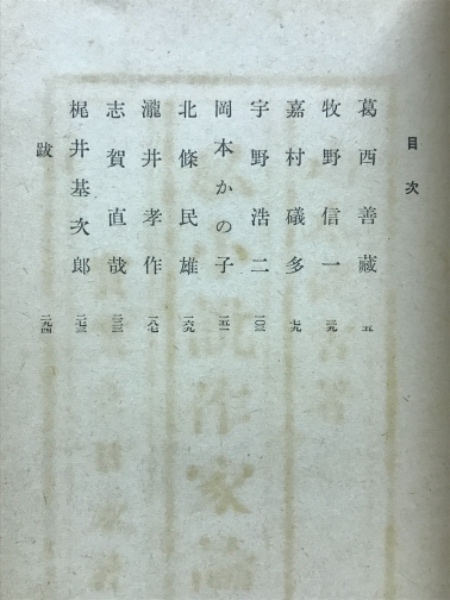 目次
葛西善藏 五
牧野信一 三九
嘉村礒多 七九
宇野浩二 一〇三
岡本かの子 一五一
北條民雄 一六九
瀧井孝作 一八七
志賀直哉 二三三
梶井基次郎 二七三
跋 二九四
作家論